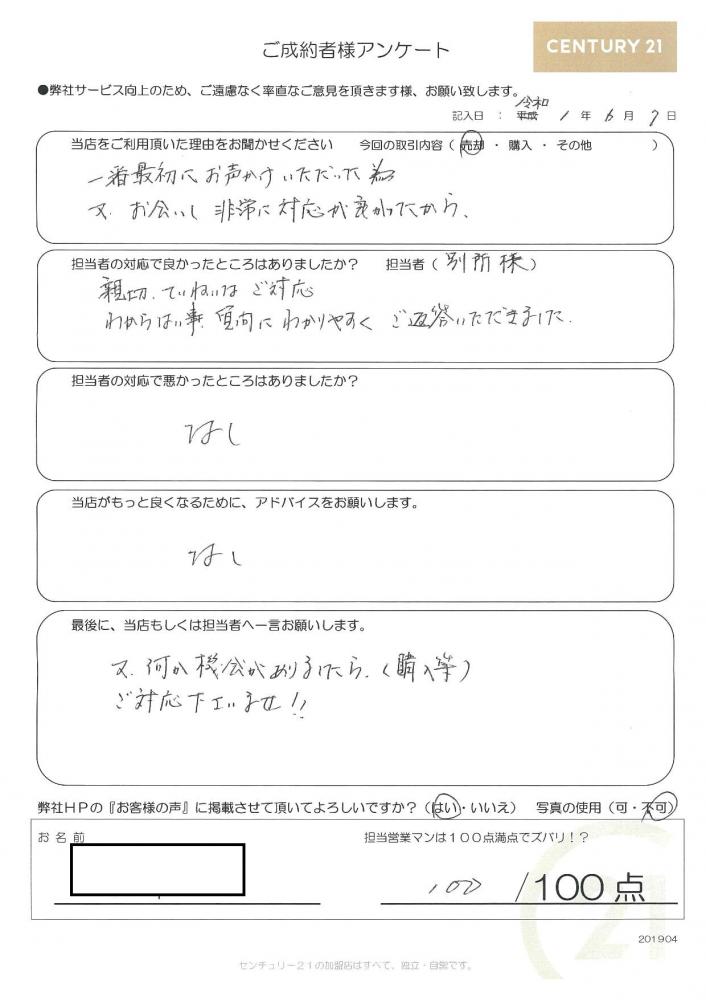 ご成約者様アンケート
CENTURY 21
●弊社サービス向上のため、ご遠慮なく率直なご意見を頂きます様、お願い致します。
令和
記入日 : 平成 1 年 6 月 7 日
当店をご利用頂いた理由をお聞かせください 今回の取引内容 ( 売却 ・ 購入 ・ その他 )
一番最初にお声かけいただいた為
又、お会いし非常に対応が良かったから、
担当者の対応で良かったところはありましたか? 担当者 ( 別所様 )
親切、ていねいな ご対応
わからない事、質問に わかりやすく ご返答いただきました。
担当者の対応で悪かったところはありましたか?
なし
当店がもっと良くなるために、アドバイスをお願いします。
なし
最後に、当店もしくは担当者へ一言お願いします。
又、何か機会がありましたら、(購入等)
ご対応下さいませ!!
弊社HPの『お客様の声』に掲載させて頂いてよろしいですか? (はい・いいえ) 写真の使用 (可・不可)
お 名 前
担当営業マンは100点満点でズバリ!?
100 /100 点
21
201904
センチュリー21の加盟店はすべて、独立・自営です。